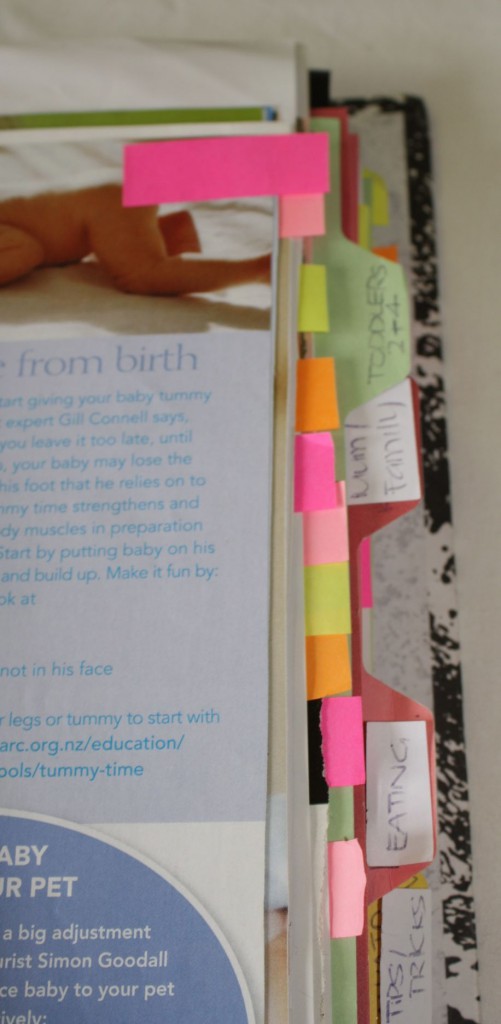 from birth
start giving your baby tummy
expert Gill Connell says,
you leave it too late, until
your baby may lose the
his foot that he relies on to
tummy time strengthens and
body muscles in preparation
Start by putting baby on his
and build up. Make it fun by:
look at
not in his face
legs or tummy to start with
arc.org.nz/education/
ools/tummy-time
BABY
UR PET
a big adjustment
urist Simon Goodall
ce baby to your pet
ively:
TODDLERS
2+4
Mum/
Family
EATING
TIPS/
TRICKS